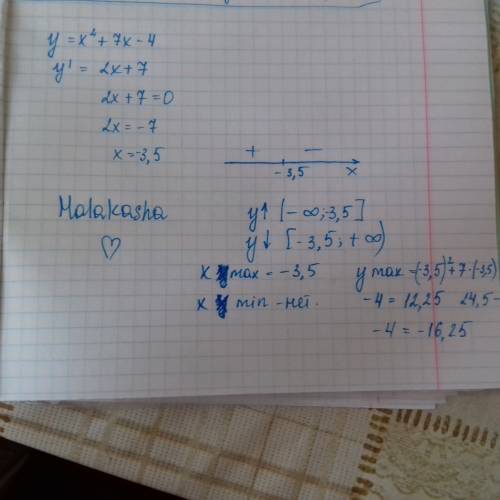 y = x² + 7x - 4
y' = 2x + 7
2x + 7 = 0
2x = -7
x = -3,5
+ −
-3,5 x
Malakasha
♡
y↑ [- ∞; 3,5]
y↓ [-3,5; + ∞)
x max = -3,5
x min - нет.
y max = (-3,5)² + 7·(-3,5)
-4 = 12,25 24,5 -
-4 = -16,25